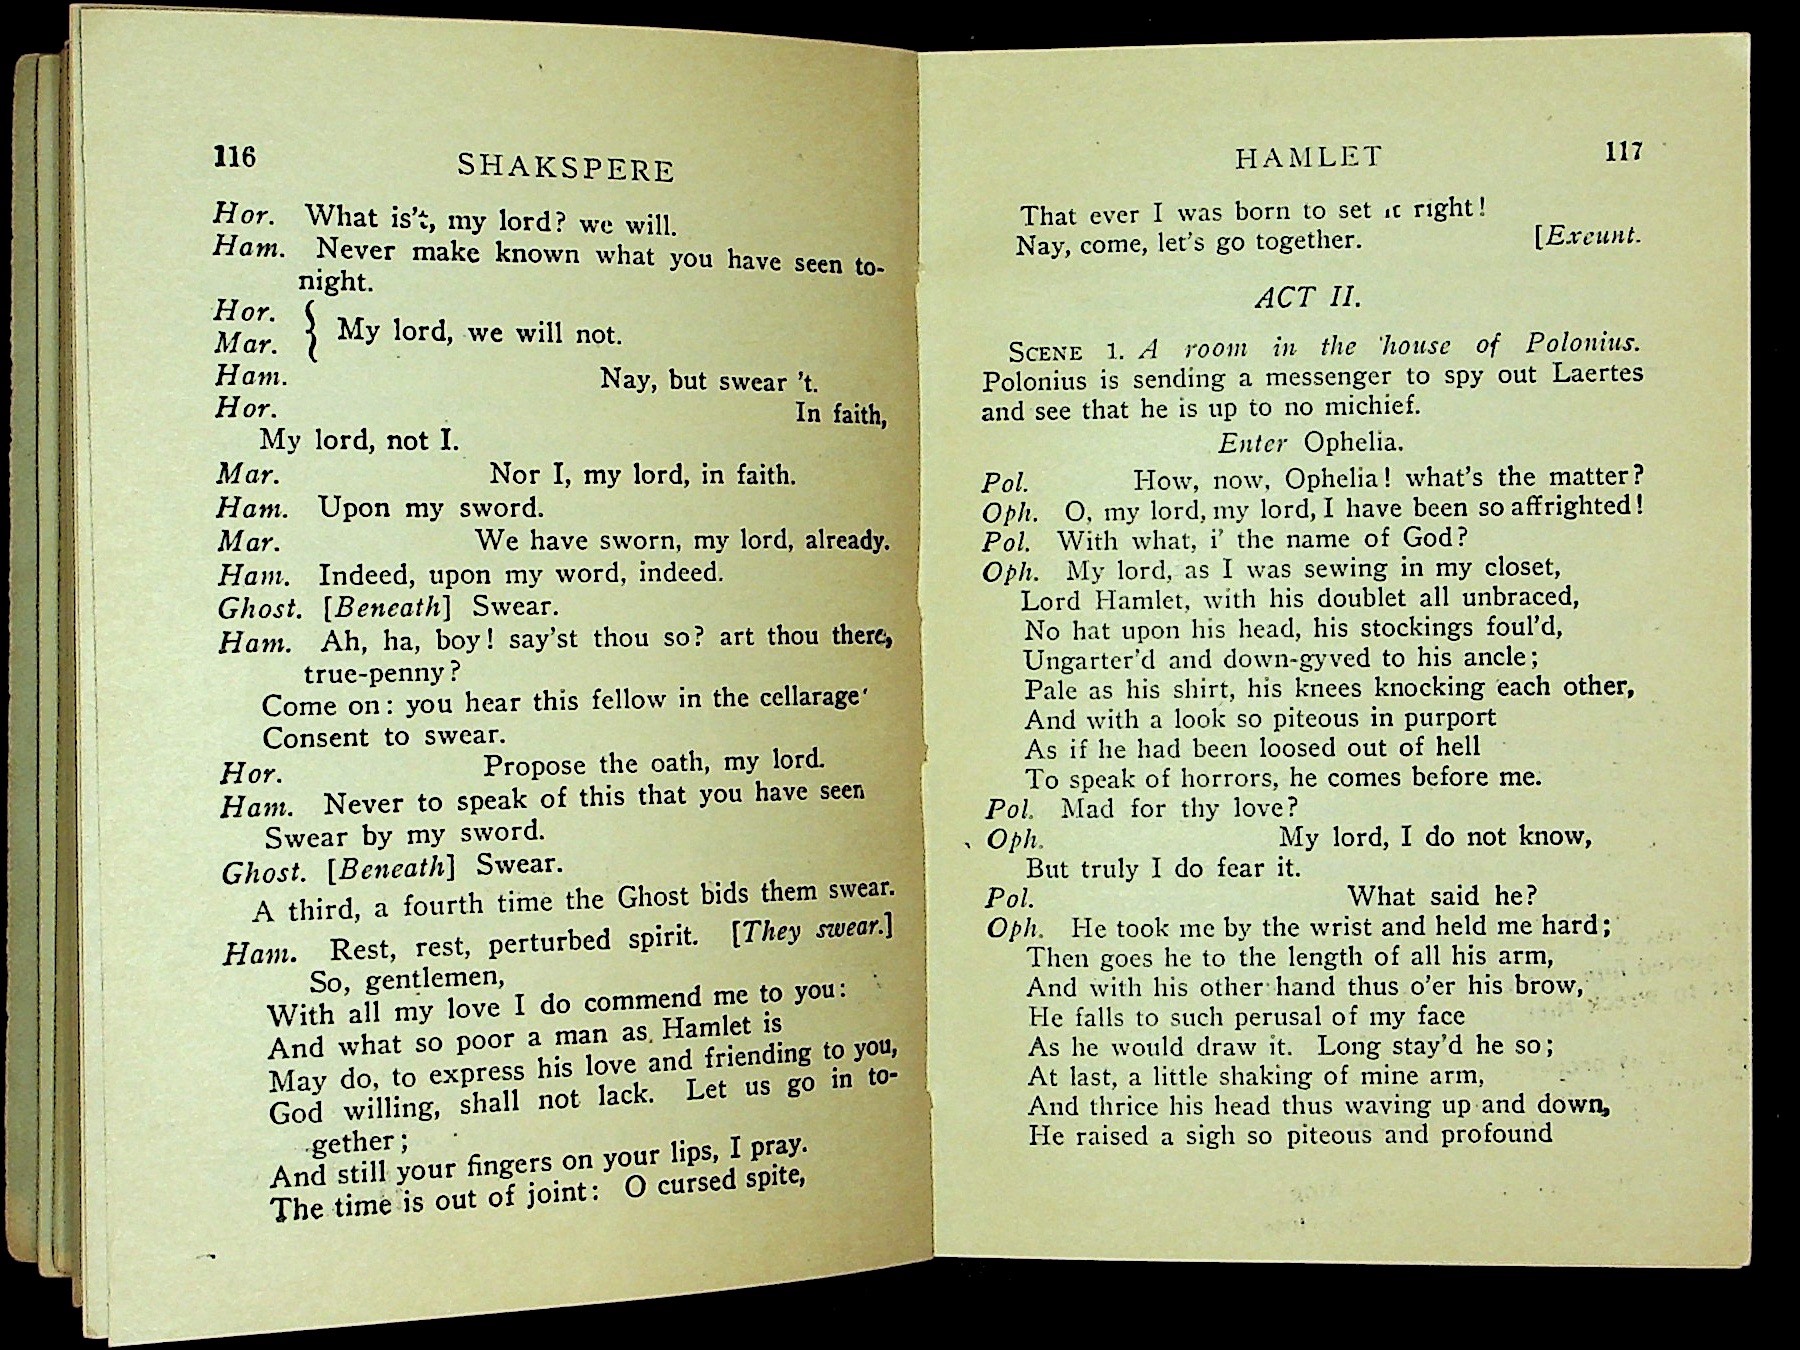 116
SHAKSPERE
Hor. What is't, my lord? we will.
Ham. Never make known what you have seen to-
night.
Hor.
Mar. } My lord, we will not.
Ham. Nay, but swear 't.
Hor. In faith,
My lord, not I.
Mar. Nor I, my lord, in faith.
Ham. Upon my sword.
Mar. We have sworn, my lord, already.
Ham. Indeed, upon my word, indeed.
Ghost. [Beneath] Swear.
Ham. Ah, ha, boy! say'st thou so? art thou there,
true-penny?
Come on: you hear this fellow in the cellarage'
Consent to swear.
Hor. Propose the oath, my lord.
Ham. Never to speak of this that you have seen
Swear by my sword.
Ghost. [Beneath] Swear.
A third, a fourth time the Ghost bids them swear.
Ham. Rest, rest, perturbed spirit. [They swear.]
So, gentlemen,
With all my love I do commend me to you:
And what so poor a man as Hamlet is
May do, to express his love and friending to you,
God willing, shall not lack. Let us go in to-
gether;
And still your fingers on your lips, I pray.
The time is out of joint: O cursed spite,
HAMLET
117
That ever I was born to set it right!
Nay, come, let's go together. [Exeunt.
ACT II.
SCENE 1. A room in the house of Polonius.
Polonius is sending a messenger to spy out Laertes
and see that he is up to no michief.
Enter Ophelia.
Pol. How, now, Ophelia! what's the matter?
Oph. O, my lord, my lord, I have been so affrighted!
Pol. With what, i' the name of God?
Oph. My lord, as I was sewing in my closet,
Lord Hamlet, with his doublet all unbraced,
No hat upon his head, his stockings foul'd,
Ungarter'd and down-gyved to his ancle;
Pale as his shirt, his knees knocking each other,
And with a look so piteous in purport
As if he had been loosed out of hell
To speak of horrors, he comes before me.
Pol. Mad for thy love?
Oph. My lord, I do not know,
But truly I do fear it.
Pol. What said he?
Oph. He took me by the wrist and held me hard;
Then goes he to the length of all his arm,
And with his other hand thus o'er his brow,
He falls to such perusal of my face
As he would draw it. Long stay'd he so;
At last, a little shaking of mine arm,
And thrice his head thus waving up and down,
He raised a sigh so piteous and profound